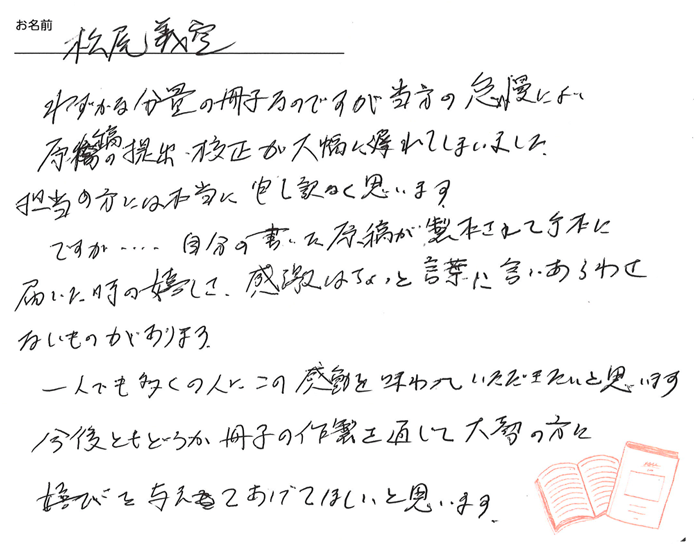 お名前
松尾義空
わずかな分量の冊子なのですが当方の怠慢により
原稿の提出、校正が大幅に遅れてしまいました
担当の方には本当に申し訳なく思います
ですが‥‥自分の書いた原稿が製本されて手本に
届いた時の嬉しさ、感激はちょっと言葉に言いあらわせ
ないものがあります。
一人でも多くの人にこの感動を味わっていただきたいと思います
今後ともどうか冊子の作製を通して大勢の方に
喜びを与えてあげてほしいと思います。